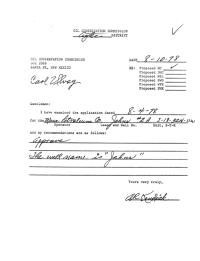 OIL CONSERVATION COMMISSION
Aztec DISTRICT
OIL CONSERVATION COMMISSION
BOX 2088
SANTA FE, NEW MEXICO
DATE 8-10-78
RE: Proposed MC
Proposed DHC
Proposed NSL
Proposed SWD
Proposed WFX
Proposed PMX
Gentlemen:
I have examined the application dated 8-4-78
for the Petroleum Co. Jahns #2A
Operator Lease and Well No. Unit, S-T-R
and my recommendations are as follows:
Approve
The well name is "Jahns"
Yours very truly,